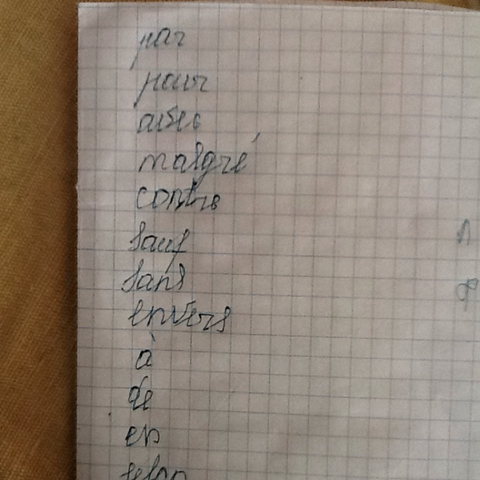 par
pour
avec
malgré
contre
sauf
sans
envers
à
de
en
selon